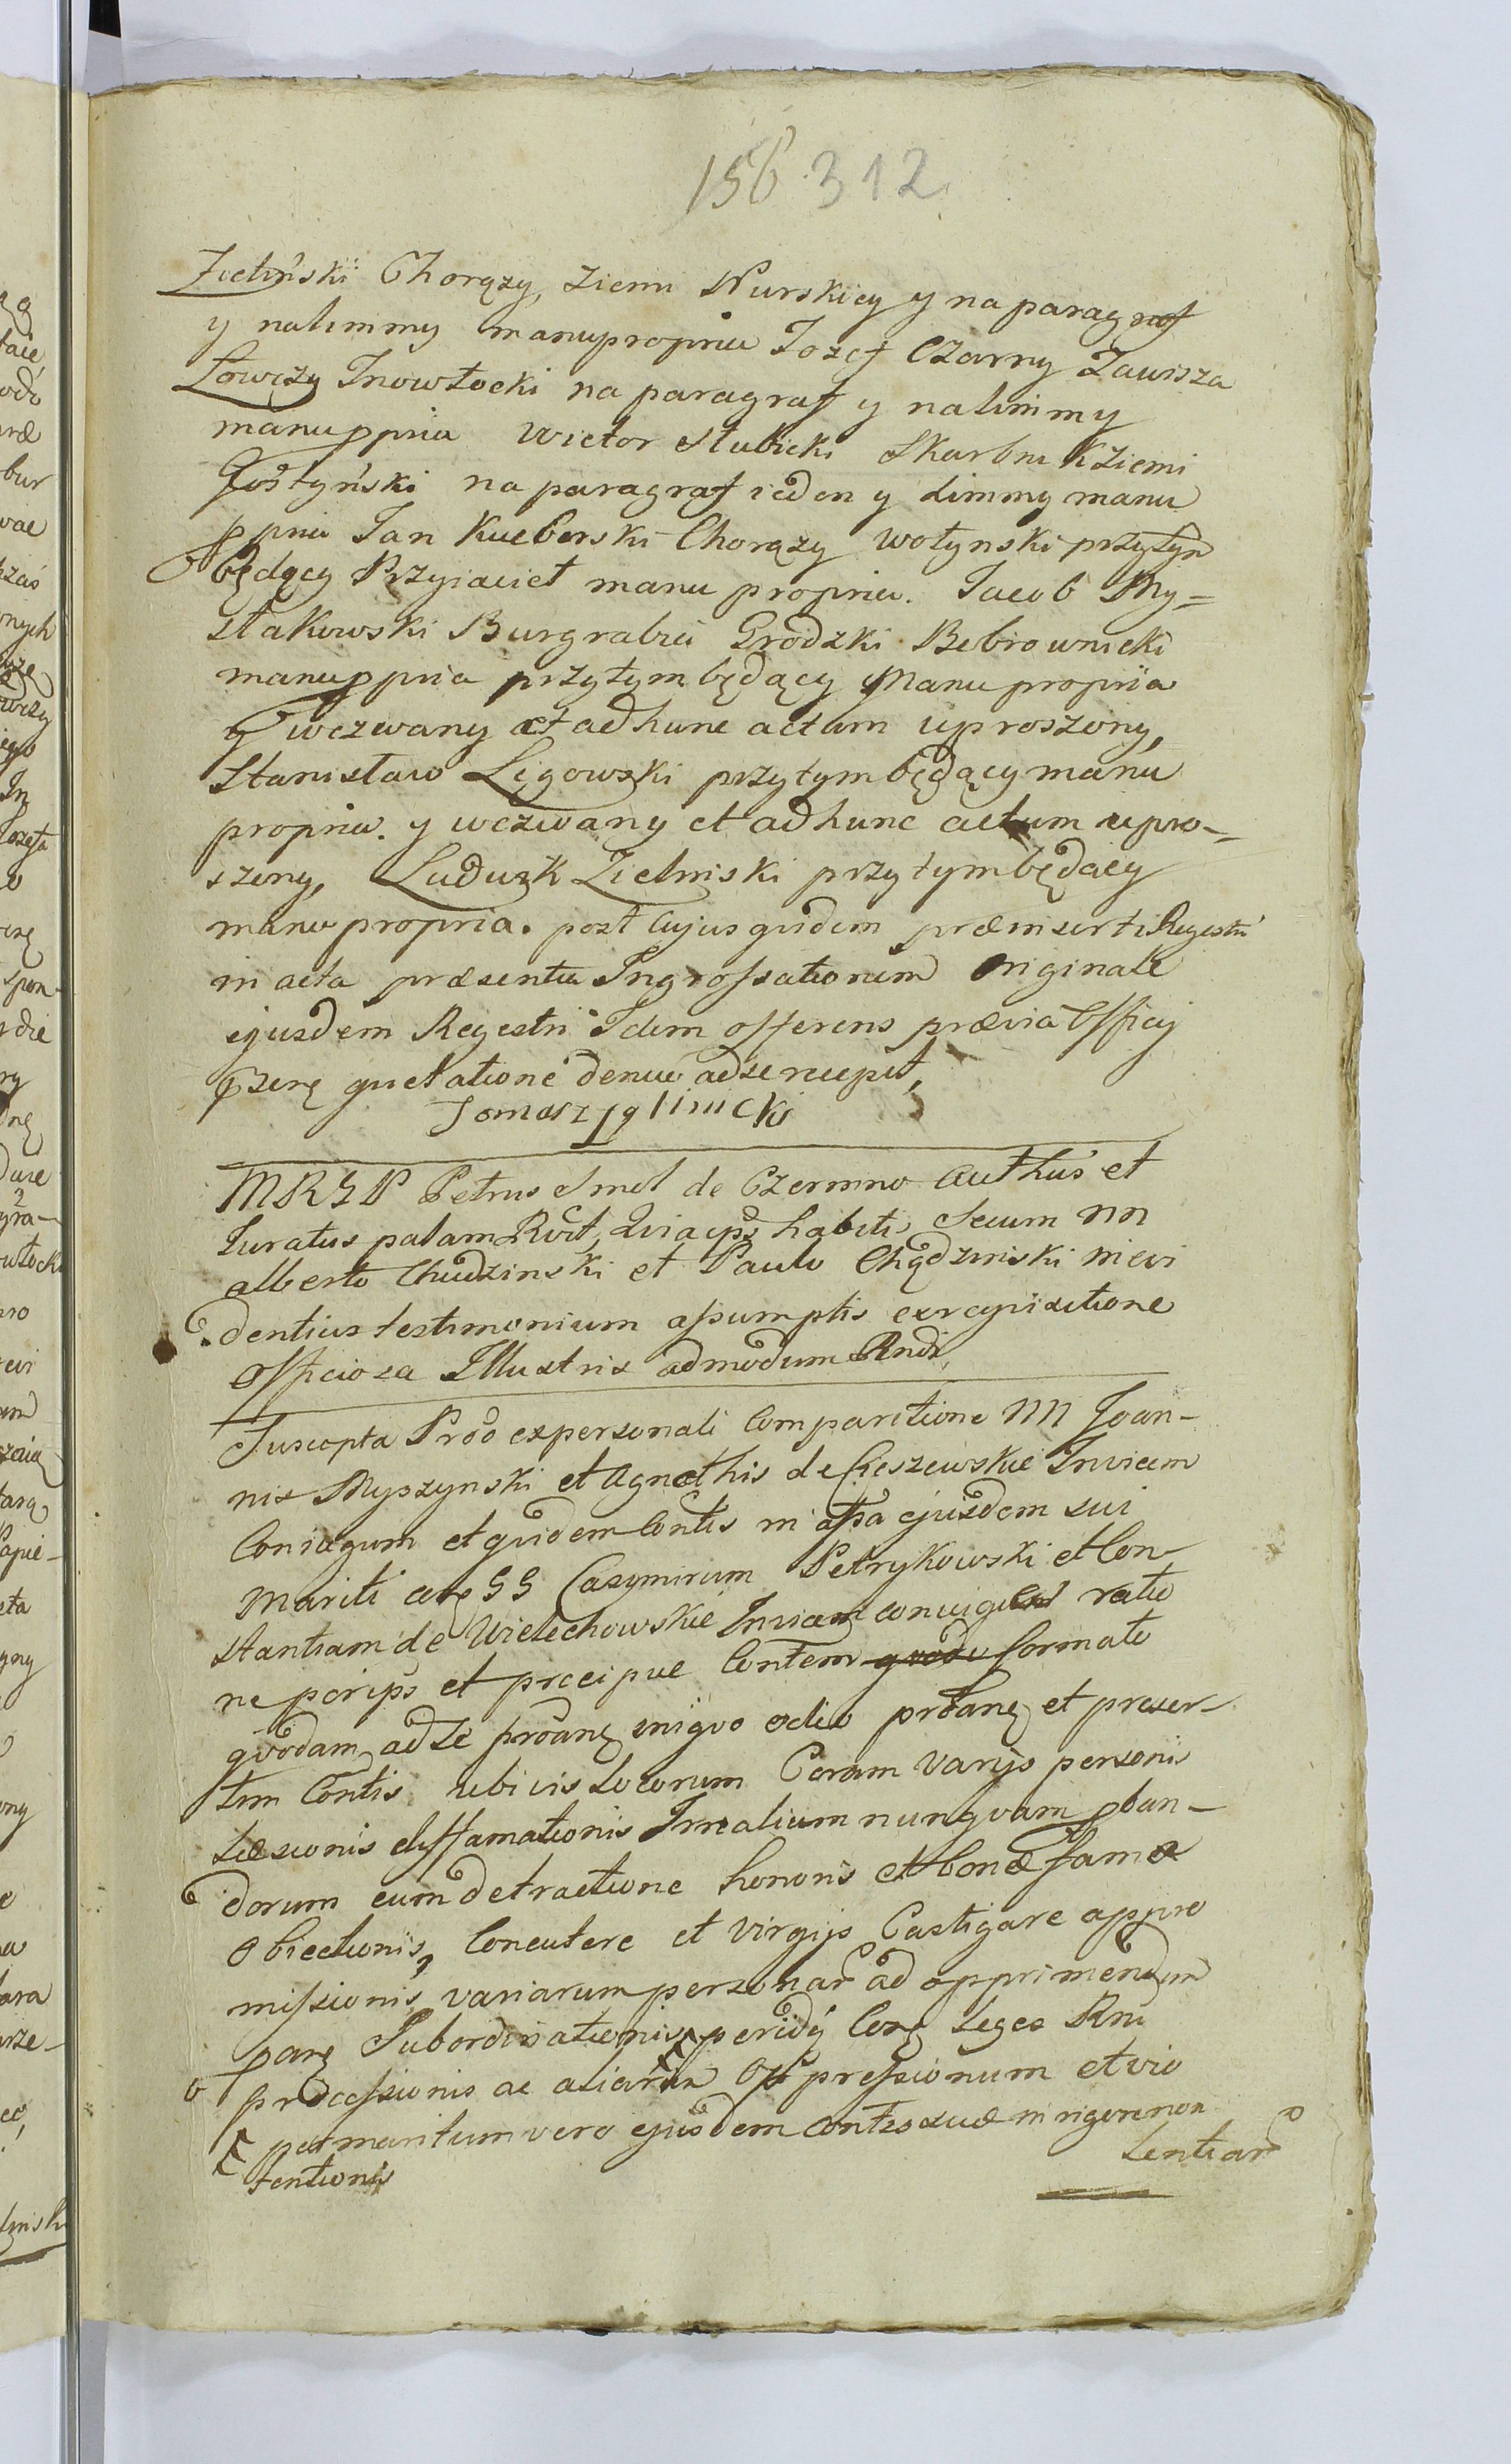 156. 312
Zielinskii Chorązy, Ziemi Nurskiey y na paragraf
y nalimmy manupropria Jozef Czarny Zawisza
Łowczy Inowłocki na paragraf y nalimmy
manuppria Wictor Słubicki Skarbnik Ziemi
Gostyński na paragraf ieden y limmy manu
ppria Jan Kuczborski Chorązy Wołynski przytym
będący Przyiaciel manu propria. Jacob My=
słakowski Burgrabia Grodzki Bobrownicki
manuppria przytym będący Manu propria
y wezwany et ad hunc actum uproszony,
Stanisław Ligowski przytym będący manu
propria. y wezwany et ad hunc actum upro=
szony, Ludwik Zielinski przytym będący
manu propria. post cujus quidem præinserti Regestri
in acta præsentia Ingrossationem Originale
ejusdem Regestri Idem offerens prævia Officij
pserę quietatione denuo ad se recepit,
Tomasz Jglinicki
MRGD Petrus Smol de Czermno Authus et
Juratus palam Rvit, Quia ips habitis Secum NN
alberto Chudzinski et Paulo Chądzinski in evi
dentius testimonium assumptis ex requisitione
officiosa Illustris admodum Rndi
Suscepta Prod ex personali Comparitione NN Joan-
nis Myszynski et Agnethis de Cieszewskie Invicem
Coniugum et quidem Contis in assa ejusdem sui
Mariti ctę GG Casymirum Petrykowski et Con
stantiam de Wielechowskie Invicem coniuges ratio
ne porips et præcipue Contem formato
quodam ad se proanę iniquo odio proanę et præser-
tim Contis ubivis Locorum Coram Varijs personis
Læsionis diffamationis Irrealium nunquam pban-
dorum cum detractione honoris et bonæ famæ
Obiectionis, Concutere et Virgijs Castigare appro
missionis variarum personar ad opprimendum
parę Subordinationis, peridij Corę Leges Rni
processionis ac aliarum Oppressionum et vio
per maritum vero ejusdem contis suæ in rigore non
tentionis
lentiar